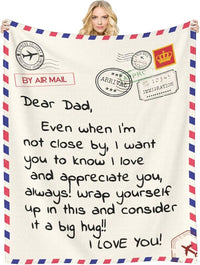 BY AIR MAIL
ARRIVAL
Dear Dad,
Even when i'm
not close by, I want
you to know I love
and appreciate you,
always! wrap yourself
up in this and consider
it a big hug!!
I LOVE YOU!